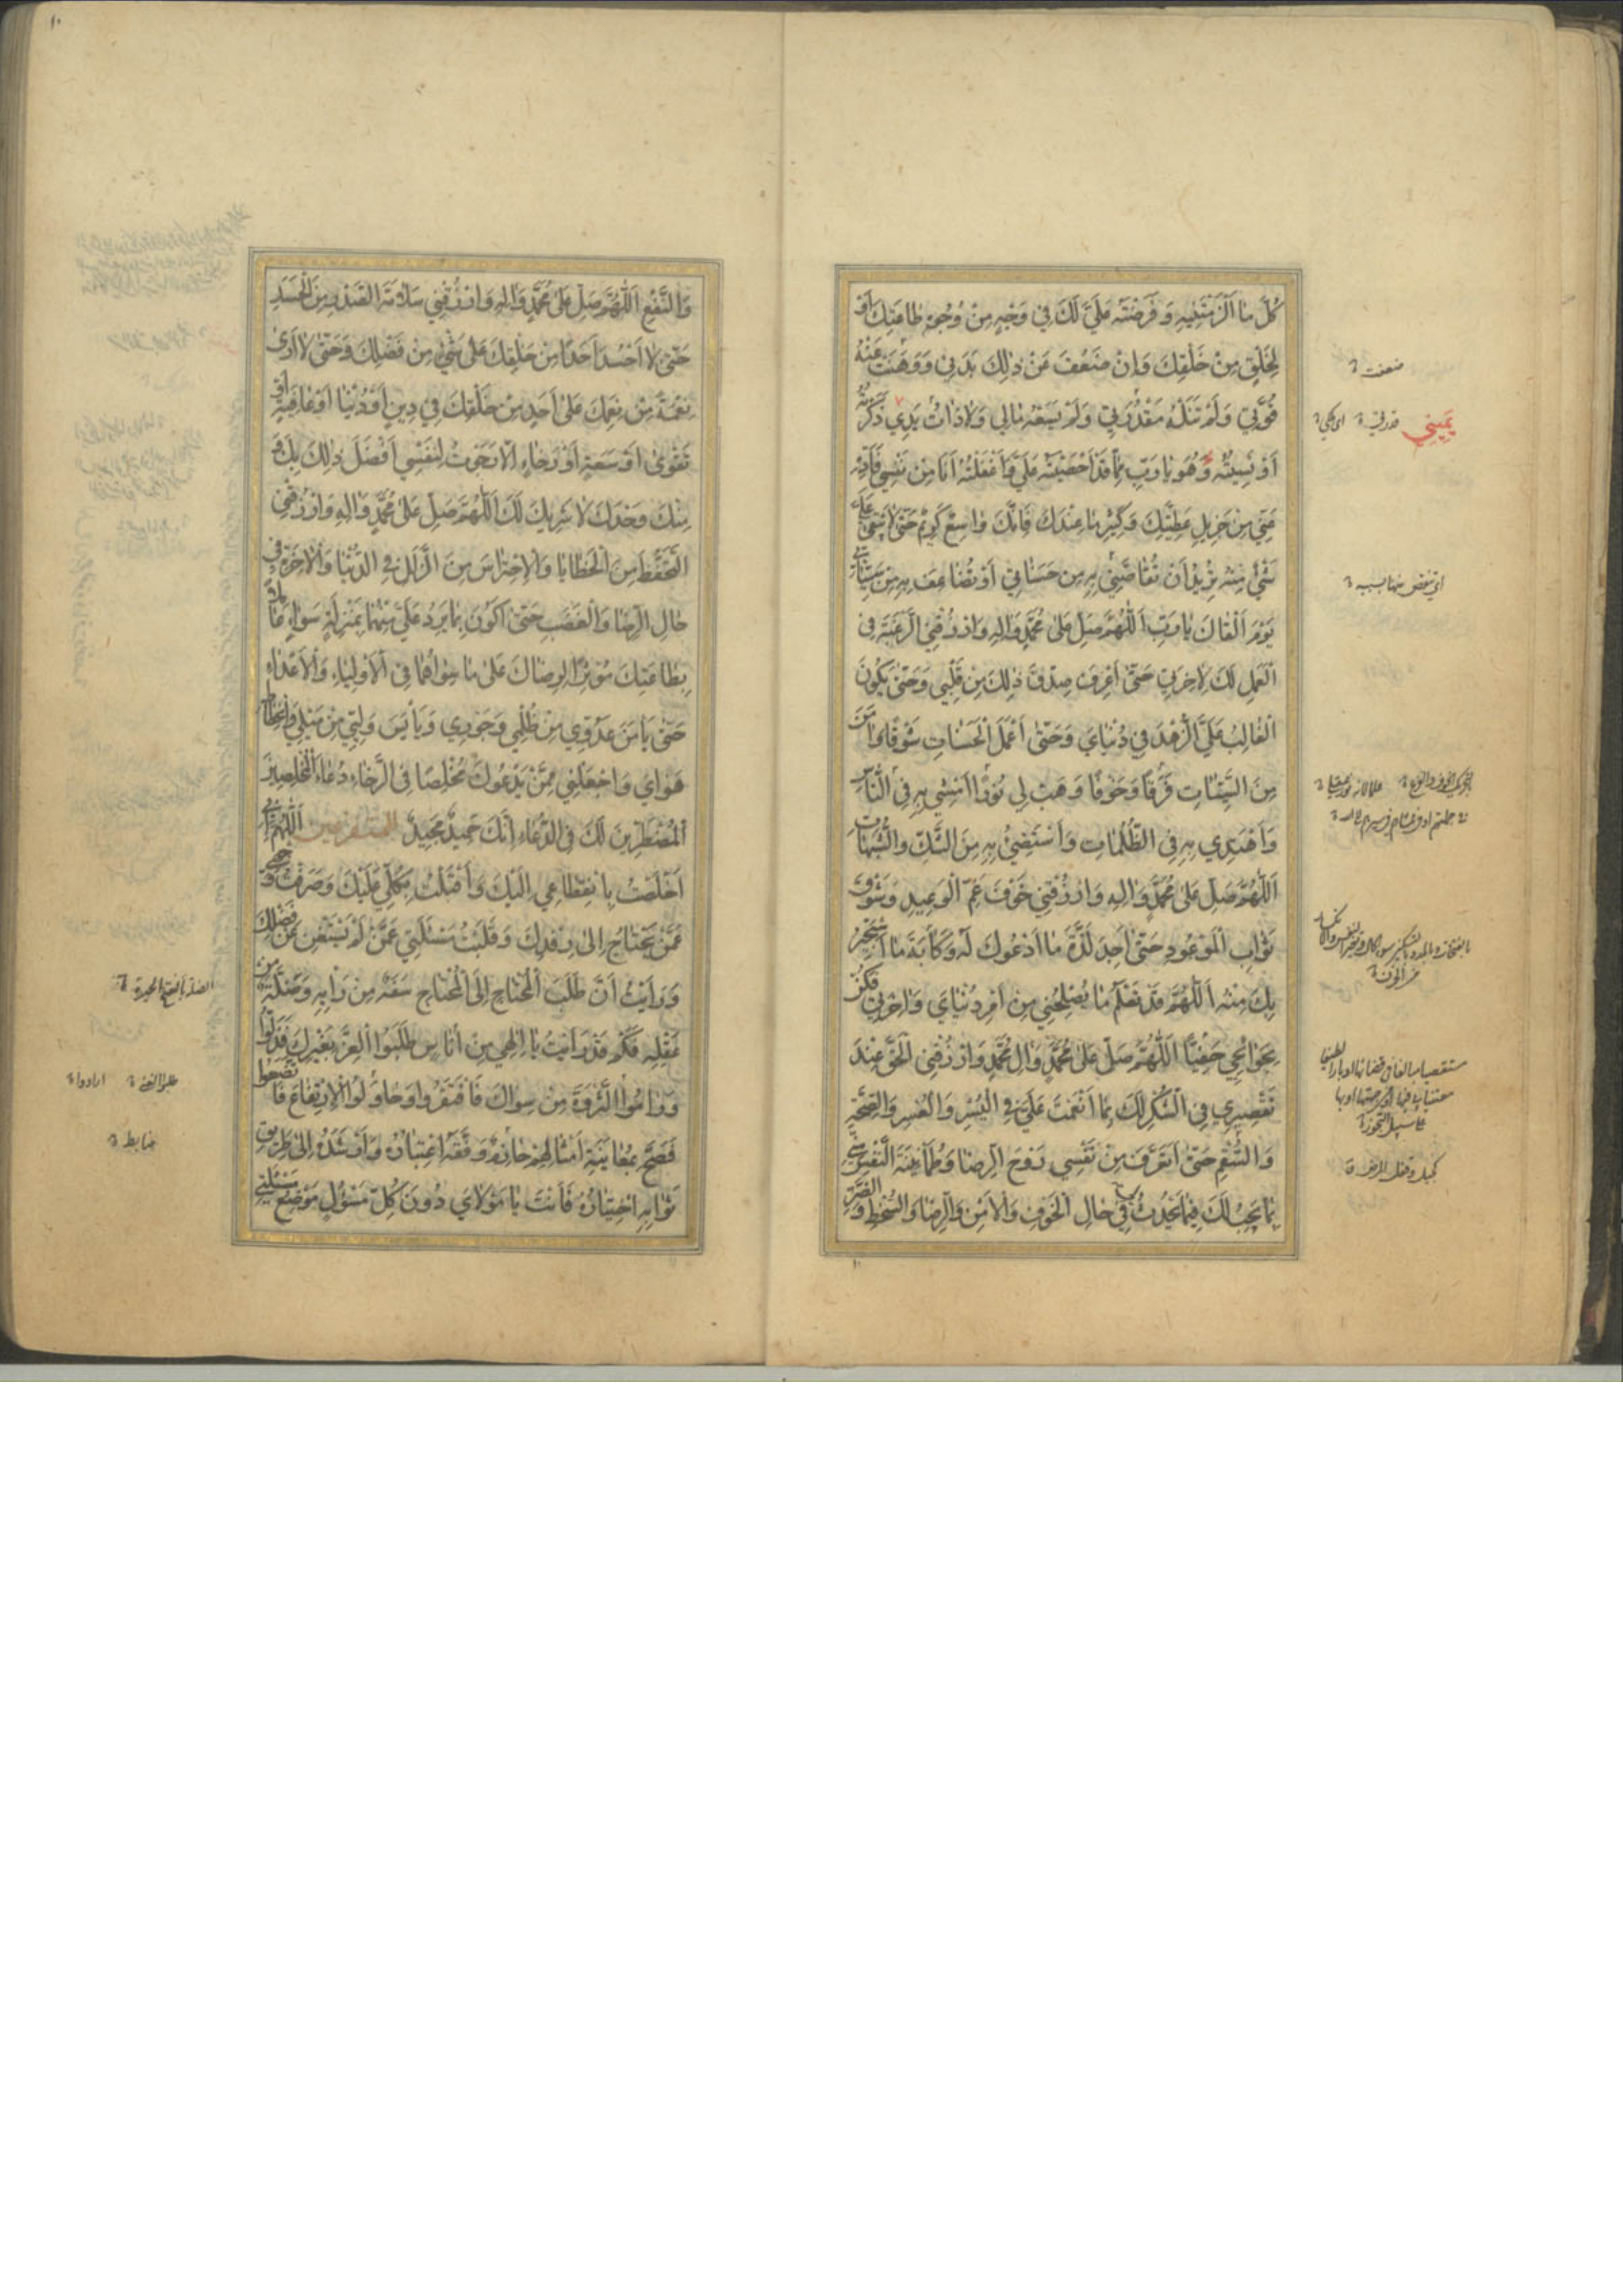 كُلَّ مَا اَلْزَمْتَنِيهِ وَفَرَضْتَهُ عَلَيَّ لَكَ فِي وَجْهٍ مِنْ وُجُوهِ طَاعَتِكَ اَوْ
لِخَلْقٍ مِنْ خَلْقِكَ وَاِنْ ضَعُفَ عَنْ ذٰلِكَ بَدَنِي وَوَهَنَتْ عَنْهُ
قُوَّتِي وَلَمْ تَنَلْهُ مَقْدُرَتِي وَلَمْ يَسَعْهُ مَالِي وَلَا ذَاتُ يَدِي ذَكَرْتُهُ
اَوْ نَسِيتُهُ وَهُوَ يَا رَبِّ مِمَّا قَدْ اَحْصَيْتَهُ عَلَيَّ وَاَغْفَلْتُهُ اَنَا مِنْ نَفْسِي فَاَدِّهِ
عَنِّي مِنْ جَزِيلِ عَطِيَّتِكَ وَكَثِيرِ مَا عِنْدَكَ فَاِنَّكَ وَاسِعٌ كَرِيمٌ حَتّٰى لَا يَبْقٰى عَلَيَّ
شَيْءٌ مِنْهُ تُرِيدُ اَنْ تُقَاصَّنِي بِهِ مِنْ حَسَنَاتِي اَوْ تُضَاعِفَ بِهِ مِنْ سَيِّئَاتِي
يَوْمَ اَلْقَاكَ يَا رَبِّ اَللّٰهُمَّ صَلِّ عَلٰى مُحَمَّدٍ وَاٰلِهِ وَارْزُقْنِي الرَّغْبَةَ فِي
الْعَمَلِ لَكَ لِاٰخِرَتِي حَتّٰى اَعْرِفَ صِدْقَ ذٰلِكَ مِنْ قَلْبِي وَحَتّٰى يَكُونَ
الْغَالِبُ عَلَيَّ الزُّهْدَ فِي دُنْيَايَ وَحَتّٰى اَعْمَلَ الْحَسَنَاتِ شَوْقًا وَاٰمَنَ
مِنَ السَّيِّئَاتِ فَرَقًا وَخَوْفًا وَهَبْ لِي نُورًا اَمْشِي بِهِ فِي النَّاسِ
وَاَهْتَدِي بِهِ فِي الظُّلُمَاتِ وَاَسْتَضِيءُ بِهِ مِنَ الشَّكِّ وَالشُّبُهَاتِ
اَللّٰهُمَّ صَلِّ عَلٰى مُحَمَّدٍ وَاٰلِهِ وَارْزُقْنِي خَوْفَ غَمِّ الْوَعِيدِ وَشَوْقَ
ثَوَابِ الْمَوْعُودِ حَتّٰى اَجِدَ لَذَّةَ مَا اَدْعُوكَ لَهُ وَكَاٰبَةَ مَا اَسْتَجِيرُ
بِكَ مِنْهُ اَللّٰهُمَّ قَدْ تَعْلَمُ مَا يُصْلِحُنِي مِنْ اَمْرِ دُنْيَايَ وَاٰخِرَتِي فَكُنْ
بِحَوَائِجِي حَفِيًّا اَللّٰهُمَّ صَلِّ عَلٰى مُحَمَّدٍ وَاٰلِ مُحَمَّدٍ وَارْزُقْنِي الْحَقَّ عِنْدَ
تَقْصِيرِي فِي الشُّكْرِ لَكَ بِمَا اَنْعَمْتَ عَلَيَّ فِي الْيُسْرِ وَالْعُسْرِ وَالصِّحَّةِ
وَالسُّقْمِ حَتّٰى اَتَعَرَّفَ مِنْ نَفْسِي رَوْحَ الرِّضَا وَطُمَأْنِينَةَ النَّفْسِ مِنِّي
بِمَا يَجِبُ لَكَ فِيمَا يَحْدُثُ فِي حَالِ الْخَوْفِ وَالْاَمْنِ وَالرِّضَا وَالسُّخْطِ وَالضَّرِّ
ضعفت
يَمِينِي
قدرتي
اي ينقص منها بسببه
وَالنَّفْعِ اَللّٰهُمَّ صَلِّ عَلٰى مُحَمَّدٍ وَاٰلِهِ وَارْزُقْنِي سَلَامَةَ الصَّدْرِ مِنَ الْحَسَدِ
حَتّٰى لَا اَحْسُدَ اَحَدًا مِنْ خَلْقِكَ عَلٰى شَيْءٍ مِنْ فَضْلِكَ وَحَتّٰى لَا اَرٰى
نِعْمَةً مِنْ نِعَمِكَ عَلٰى اَحَدٍ مِنْ خَلْقِكَ فِي دِينٍ اَوْ دُنْيَا اَوْ عَافِيَةٍ اَوْ
تَقْوٰى اَوْ سَعَةٍ اَوْ رَخَاءٍ اِلَّا رَجَوْتُ لِنَفْسِي اَفْضَلَ ذٰلِكَ بِكَ وَ
مِنْكَ وَحْدَكَ لَا شَرِيكَ لَكَ اَللّٰهُمَّ صَلِّ عَلٰى مُحَمَّدٍ وَاٰلِهِ وَارْزُقْنِي
التَّحَفُّظَ مِنَ الْخَطَايَا وَالْاِحْتِرَاسَ مِنَ الزَّلَلِ فِي الدُّنْيَا وَالْاٰخِرَةِ فِي
حَالِ الرِّضَا وَالْغَضَبِ حَتّٰى اَكُونَ بِمَا يَرِدُ عَلَيَّ مِنْهُمَا بِمَنْزِلَةٍ سَوَاءٍ عَامِلًا
بِطَاعَتِكَ مُؤْثِرًا لِرِضَاكَ عَلٰى مَا سِوَاهُمَا فِي الْاَوْلِيَاءِ وَالْاَعْدَاءِ
حَتّٰى يَأْمَنَ عَدُوِّي مِنْ ظُلْمِي وَجَوْرِي وَيَأْيَسَ وَلِيِّي مِنْ مَيْلِي وَانْحِطَاطِ
هَوَايَ وَاجْعَلْنِي مِمَّنْ يَدْعُوكَ مُخْلِصًا فِي الرَّخَاءِ دُعَاءَ الْمُخْلِصِينَ
الْمُضْطَرِّينَ لَكَ فِي الدُّعَاءِ اِنَّكَ حَمِيدٌ مَجِيدٌ اَللّٰهُمَّ اِنِّي
اَخْلَصْتُ بِانْقِطَاعِي اِلَيْكَ وَاَقْبَلْتُ بِكُلِّي عَلَيْكَ وَصَرَفْتُ وَجْهِي
عَمَّنْ يَحْتَاجُ اِلٰى رِفْدِكَ وَقَلَبْتُ مَسْئَلَتِي عَمَّنْ لَمْ يَسْتَغْنِ عَنْ فَضْلِكَ
وَرَاَيْتُ اَنَّ طَلَبَ الْمُحْتَاجِ اِلَى الْمُحْتَاجِ سَفَهٌ مِنْ رَأْيِهِ وَضَلَّةٌ مِنْ
عَقْلِهِ فَكَمْ قَدْ رَاَيْتُ يَا اِلٰهِي مِنْ اُنَاسٍ طَلَبُوا الْعِزَّ بِغَيْرِكَ فَذَلُّوا
وَرَامُوا الثَّرْوَةَ مِنْ سِوَاكَ فَافْتَقَرُوا وَحَاوَلُوا الْاِرْتِفَاعَ فَاتَّضَعُوا
فَصَحَّ بِمُعَايَنَةِ اَمْثَالِهِمْ حَازِمٌ وَفَّقَهُ اعْتِبَارُهُ وَاَرْشَدَهُ اِلٰى طَرِيقِ
صَوَابِهِ اخْتِيَارُهُ فَاَنْتَ يَا مَوْلَايَ دُونَ كُلِّ مَسْئُولٍ مَوْضِعُ مَسْئَلَتِي
ارادوا
ضابط
١٠